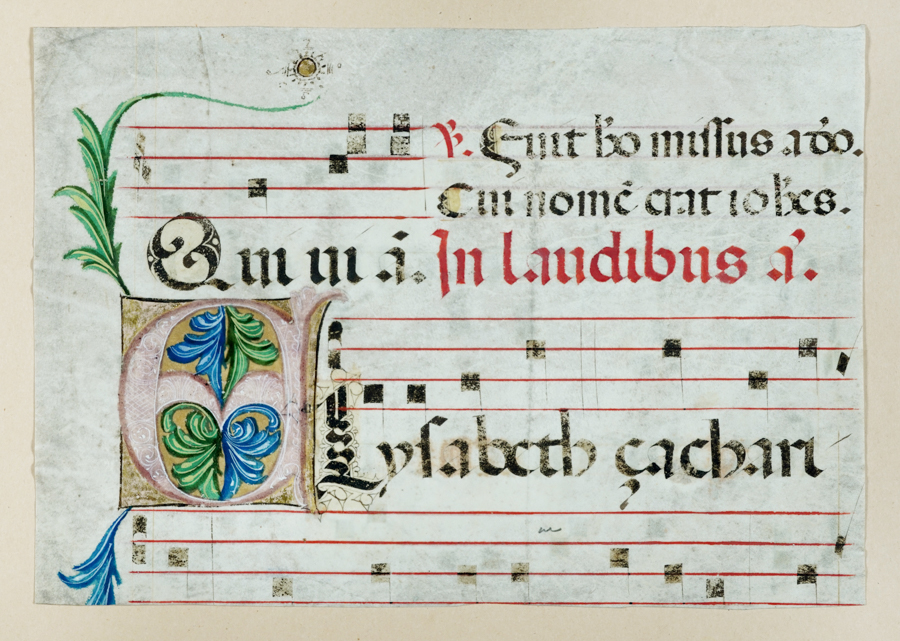 ℣. Fuit hõ missus a dõ.
Cui nomẽ erat iohẽs.
Qm̃ in ã. In laudibus ã.
Elysabeth çachari